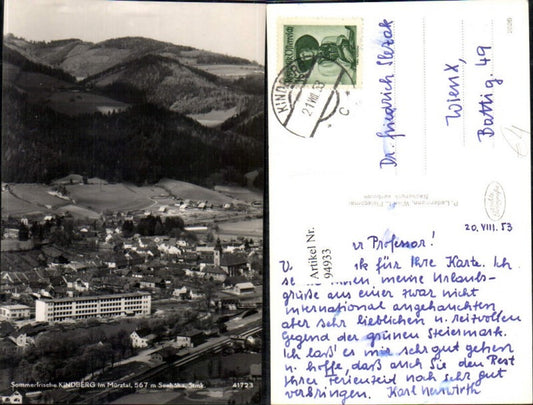 Sommerfrische KINDBERG im Mürztal, 567 m Seehöhe, Stmk. 41723
REPUBLIK ÖSTERREICH
KINDBERG
21.VIII.53
C
Dr. Friedrich Slezak
Wien X,
Battig. 49
P. Ledermann, Wien
Artikel Nr.
94933
20.VIII.53
r Professor!
k für Ihre Karte. Ich
meine Urlaubs-
grüße aus einer zwar nicht
international angehauchten
aber sehr lieblichen u. reizvollen
Gegend der grünen Steiermark.
Ich laß' es mir sehr gut gehen
u. hoffe, daß auch Sie den Rest
Ihrer Ferienzeit noch sehr gut
verbringen. Karl